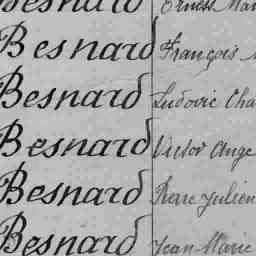 Besnard Ernest
Besnard François
Besnard Ludovic Cha
Besnard Victor Ange
Besnard Pierre Julien
Besnard Jean Marie